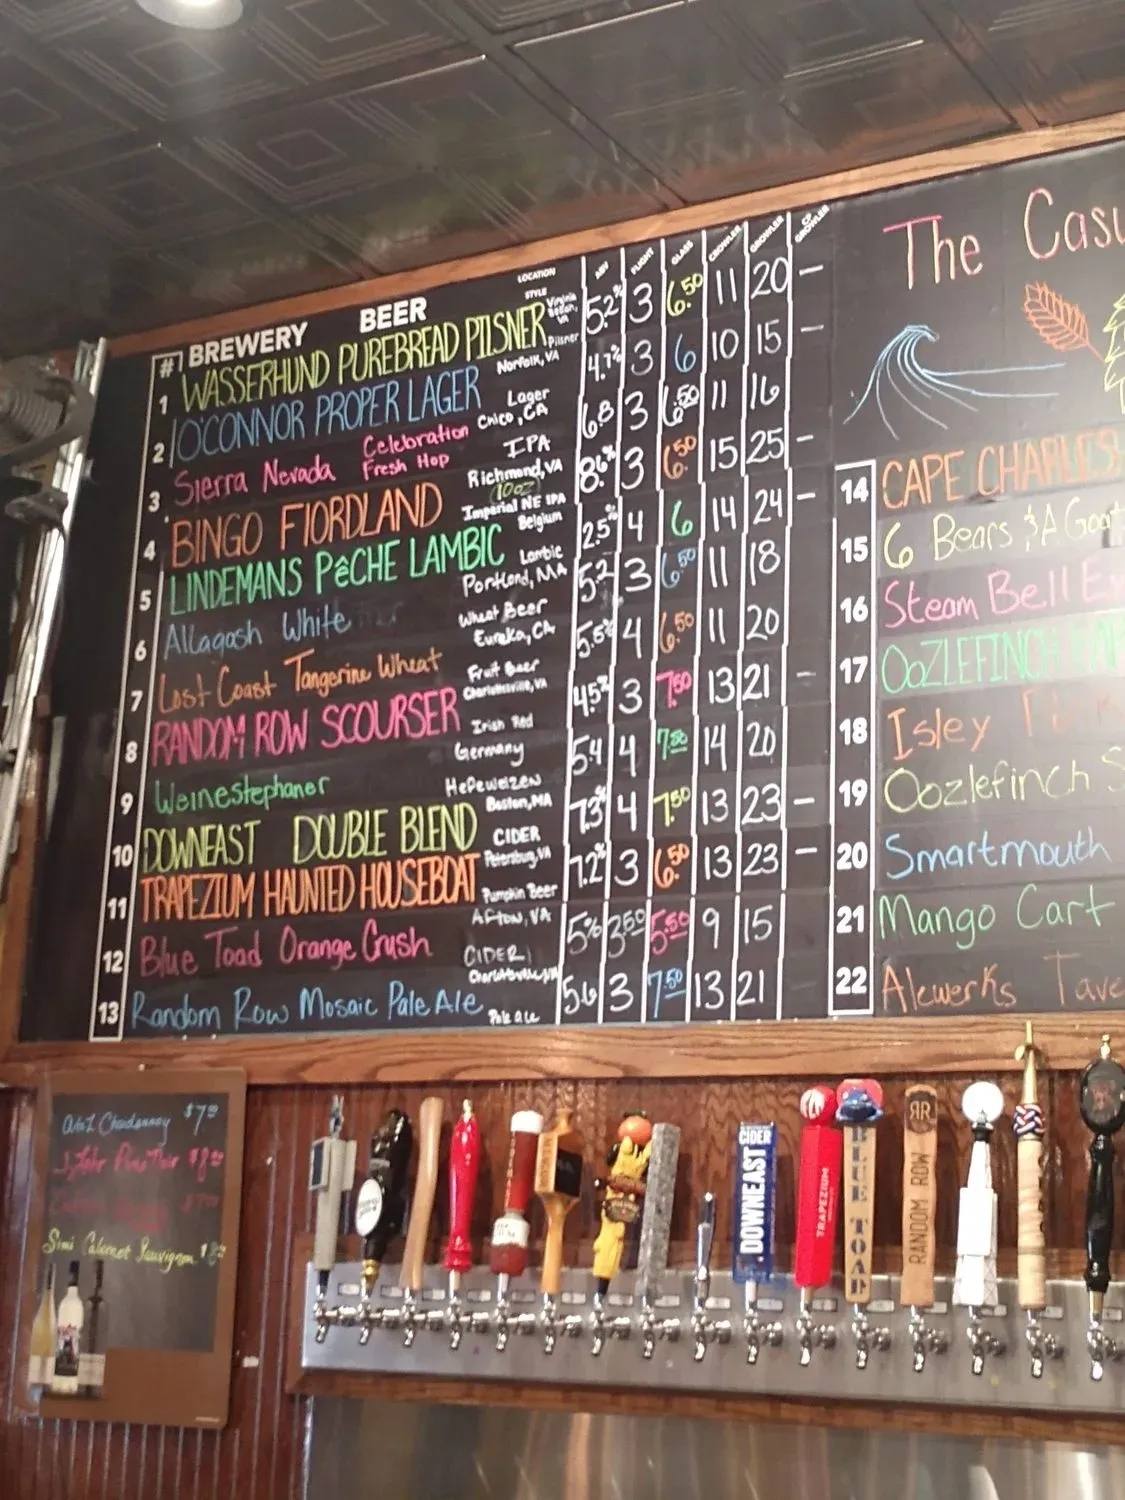 The Casu
# BREWERY BEER LOCATION STYLE ABV FLIGHT GLASS CROWLER GROWLER CP GROWLER
1 WASSERHUND PUREBREAD PILSNER Virginia Beach, VA Pilsner 5.2% 3 6.50 11 20 –
2 O'CONNOR PROPER LAGER Norfolk, VA Lager 4.7% 3 6 10 15 –
3 Sierra Nevada Celebration Fresh Hop Chico, CA IPA 6.8 3 6.50 11 16
4 BINGO FIORDLAND Richmond, VA 10oz Imperial NE IPA 8.6% 3 6.50 15 25 –
5 LINDEMANS PêCHE LAMBIC Belgium Lambic 2.5% 4 6 14 24 –
6 Allagash White Portland, MA Wheat Beer 5.2 3 6.50 11 18
7 Lost Coast Tangerine Wheat Eureka, CA Fruit Beer 5.5% 4 6.50 11 20
8 RANDOM ROW SCOURSER Charlottesville, VA Irish Red 4.5% 3 7.50 13 21 –
9 Weinestephaner Germany Hefeweizen 5.4 4 7.50 14 20
10 DOWNEAST DOUBLE BLEND Boston, MA CIDER 7.3% 4 7.50 13 23 –
11 TRAPEZIUM HAUNTED HOUSEBOAT Petersburg, VA Pumpkin Beer 7.2% 3 6.50 13 23 –
12 Blue Toad Orange Crush Afton, VA CIDER 5% 3.50 5.50 9 15
13 Random Row Mosaic Pale Ale Charlottesville, VA Pale ale 5.6 3 7.50 13 21
14 CAPE CHARLES
15 6 Bears & A Goat
16 Steam Bell
17 OOZLEFINCH
18 Isley
19 Oozlefinch
20 Smartmouth
21 Mango Cart
22 Alewerks Tave
AtoZ Chardonnay $7
J Lohr Pinot Noir $8
Simi Cabernet Sauvignon
CIDER
DOWNEAST
TRAPEZIUM
BLUE TOAD
RR
RANDOM ROW